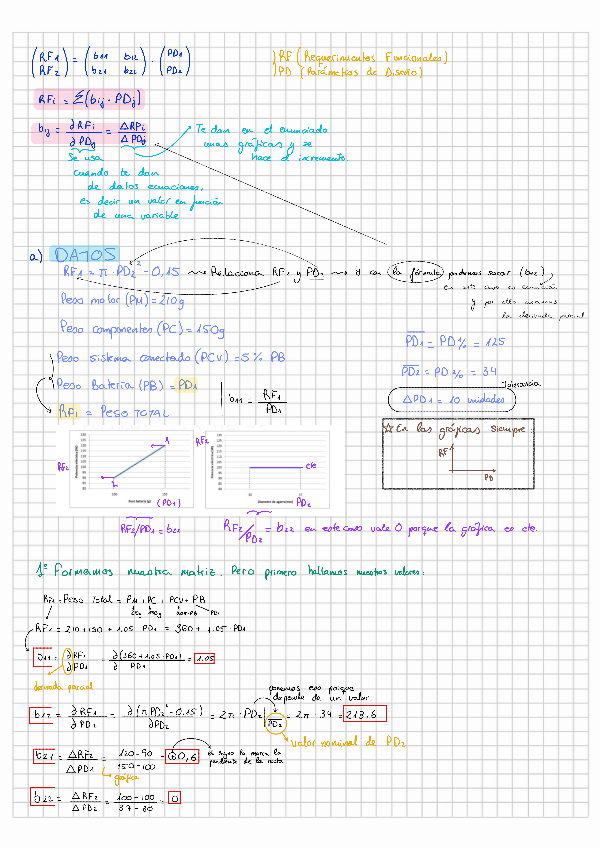 (RF1 RF2) = (b11 b12 b21 b22) · (PD1 PD2)
RF (Requerimientos Funcionales)
PD (Parámetros de Diseño)
RFi = Σ(bij · PDj)
bij = ∂RFi / ∂PDj = ΔRFi / ΔPDj
Te dan en el enunciado
unas gráficas y se
hace el incremento
Se usa
cuando te dan
de datos ecuaciones,
es decir un valor en función
de una variable
a) DATOS
RF1 = π · PD2² - 0,15 Relaciona RF1 y PD2 y con la fórmula podemos sacar (b12),
en este caso es ecuación
y por ello usamos
la derivada parcial
Peso motor (PM) = 210g
Peso componentes (PC) = 150g
Peso sistema conectado (PCV) = 5% PB
Peso Batería (PB) = PD1
RF1 = PESO TOTAL
b11 = RF1 / PD1
PD1 = PD1⁰ = 125
PD2 = PD2⁰ = 34
Tolerancia
ΔPD1 = 10 unidades
☆ En las gráficas siempre
RF
PD
RF2
(PD1)
RF2
cte
PD2
RF2/PD1 = b22
RF2/PD2 = b22 en este caso vale 0 porque la gráfica es cte.
1º Formamos nuestra matriz. Pero primero hallamos nuestros valores:
RF1 = Peso Total = PM + PC + PCV + PB
RF1 = 210 + 150 + 1.05 · PD1 = 360 + 1.05 · PD1
b11 = ∂RF1 / ∂PD1 = ∂(360 + 1.05 · PD1) / ∂PD1 = 1.05
derivada parcial
ponemos eso porque
depende de un valor
b12 = ∂RF1 / ∂PD1 = ∂(π PD2² - 0.15) / ∂PD2 = 2π · PD2 | PD2 = 2π · 34 = 213,6
valor nominal de PD2
b21 = ΔRF2 / ΔPD1 = 120-90 / 150-100 = 0,6
el signo lo marca la
pendiente de la recta
gráfica
b22 = ΔRF2 / ΔPD2 = 100-100 / 37-30 = 0